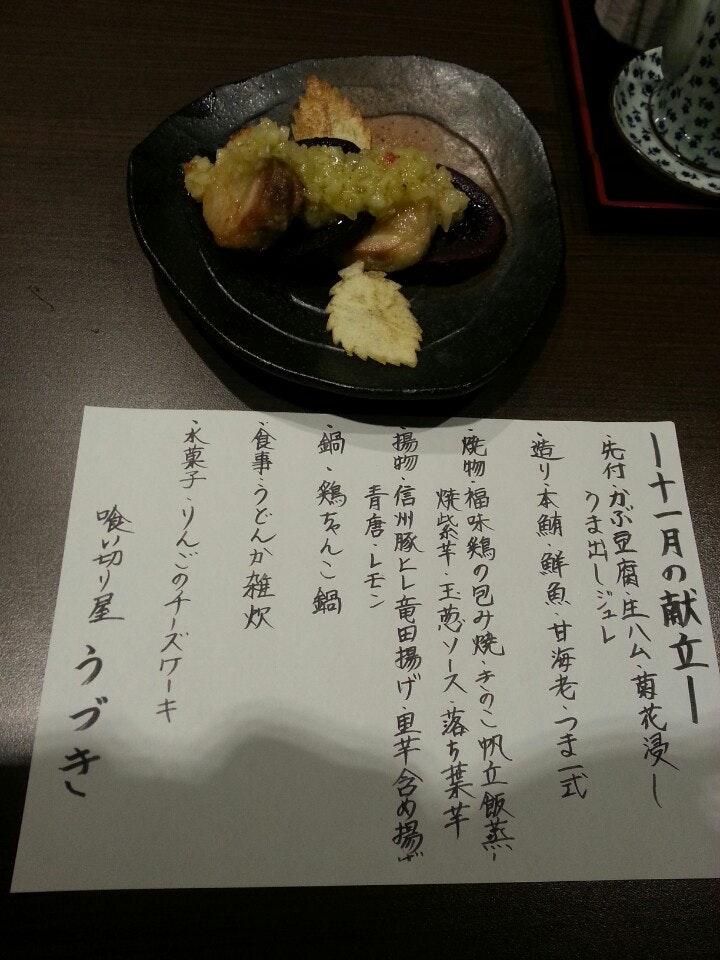 ー十一月の献立ー
・先付・かぶ豆腐・生ハム・菊花浸し
うま出しジュレ
・造り・本鮪・鮮魚・甘海老・つま一式
・焼物・福味鶏の包み焼・きのこ帆立飯蒸し
焼紫芋・玉葱ソース・落ち葉芋
・揚物・信州豚ヒレ竜田揚げ・里芋含め揚げ
青唐・レモン
・鍋・鶏ちゃんこ鍋
・食事・うどんか雑炊
・水菓子・りんごのチーズケーキ
喰い切り屋 うづき